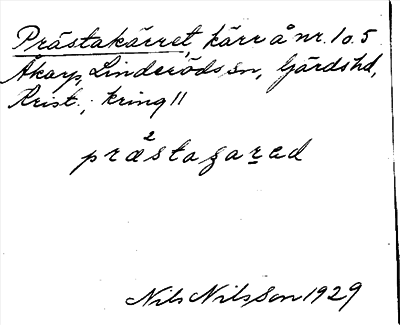 Prästakärret, kärr å nr. 1 o. 5
Åkarp, Linderöds sn, Gärds hd,
Krist.; kring 11
præ²stagarad
Nils Nilsson 1929